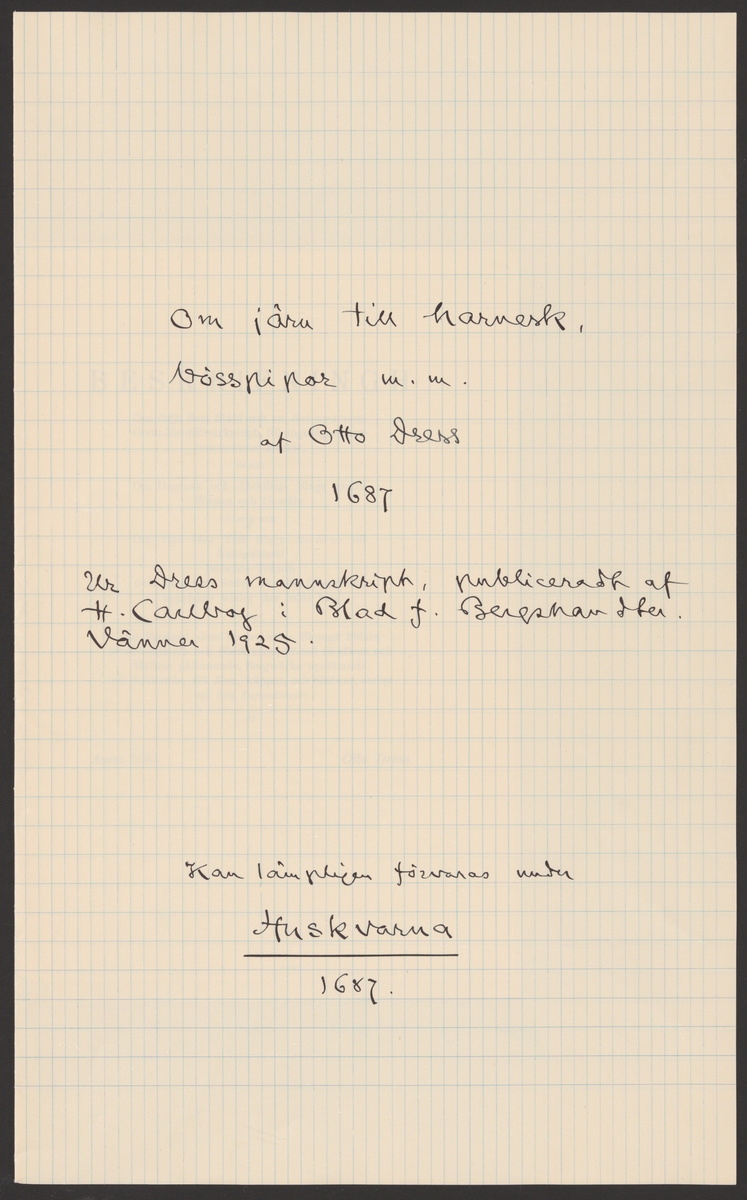 Om järn till harnesk,
bösspipor m. m.
af Otto Dress
1687
Ur Dress mannskript, publiceradt af
H. Carlborg i Blad f. Bergshandter.
Vänner 1925.
Kan lämpligen förvaras under
Huskvarna
1687.